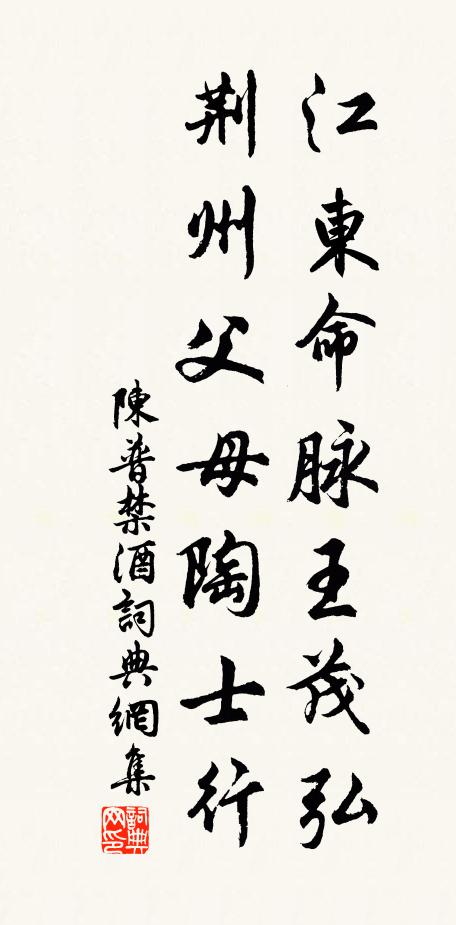 江東命脉王茂弘
荆州父母陶士行
陳普禁酒詞典網集
詞典網印